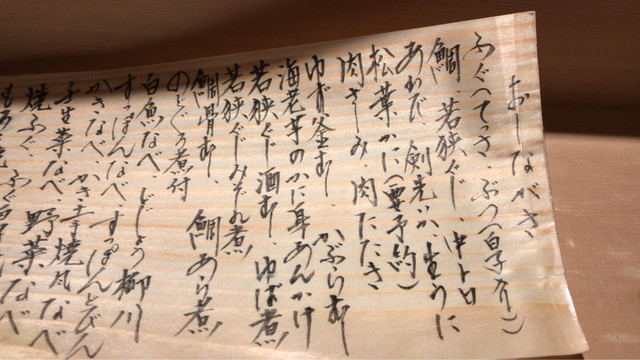 おしながき
ふぐ(てっさ、ぶつ(白子入り)
鯛、若狭ぐじ、中トロ
あわび、剣先いか、生うに
松葉かに(要予約)
肉さしみ、肉たたき
ゆず釜むし、かぶらむし
海老芋のかに身あんかけ
若狭ぐじ酒むし、ゆば煮
若狭ぐじみぞれ煮
鯛骨むし、鯛あら煮
のどぐろ煮付
白魚なべ、どじょう柳川
すっぽんなべ、すっぽんどびん
かきなべ、かき土手焼風なべ
壬生菜なべ、野菜なべ
焼ふぐ、